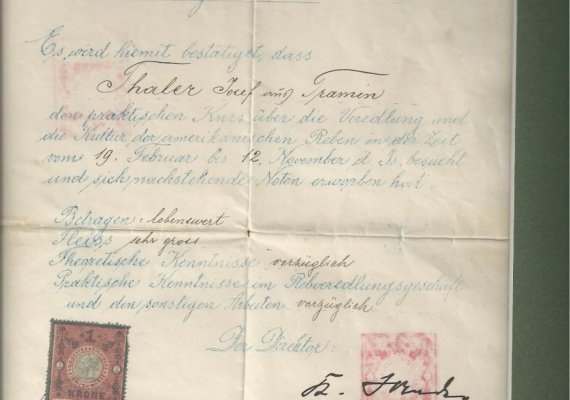 Es wird hiemit bestätiget, dass
Thaler Josef aus Tramin
den praktischen Kurs über die Veredlung und
die Kultur der amerikanischen Reben in der Zeit
vom 19. Februar bis 12. November d. Js. besucht
und sich nachstehende Noten erworben hat.
Betragen: lobenswert
Fleiss sehr gross
Theoretische Kenntnisse vorzüglich
Praktische Kenntnisse im Rebveredlungsgeschäft
und den sonstigen Arbeiten vorzüglich
Der Direktor:
1
KRONE